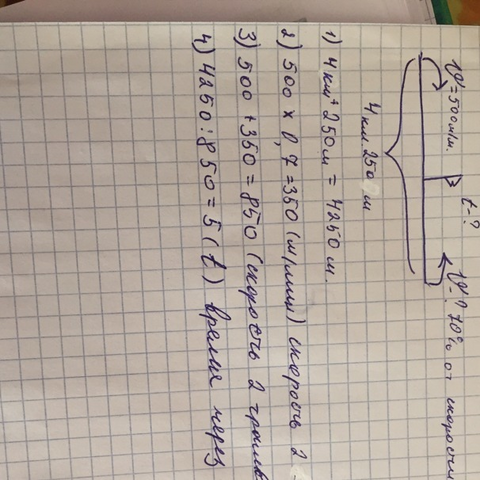 V=500м/м.
t-?
V-? 70% от скорости
4 км. 250 м
1) 4 км + 250 м = 4250 м.
2) 500 × 0,7 = 350 (м/мин) скорость 2
3) 500 + 350 = 850 (скорость 2
4) 4250 : 850 = 5 (t) время через